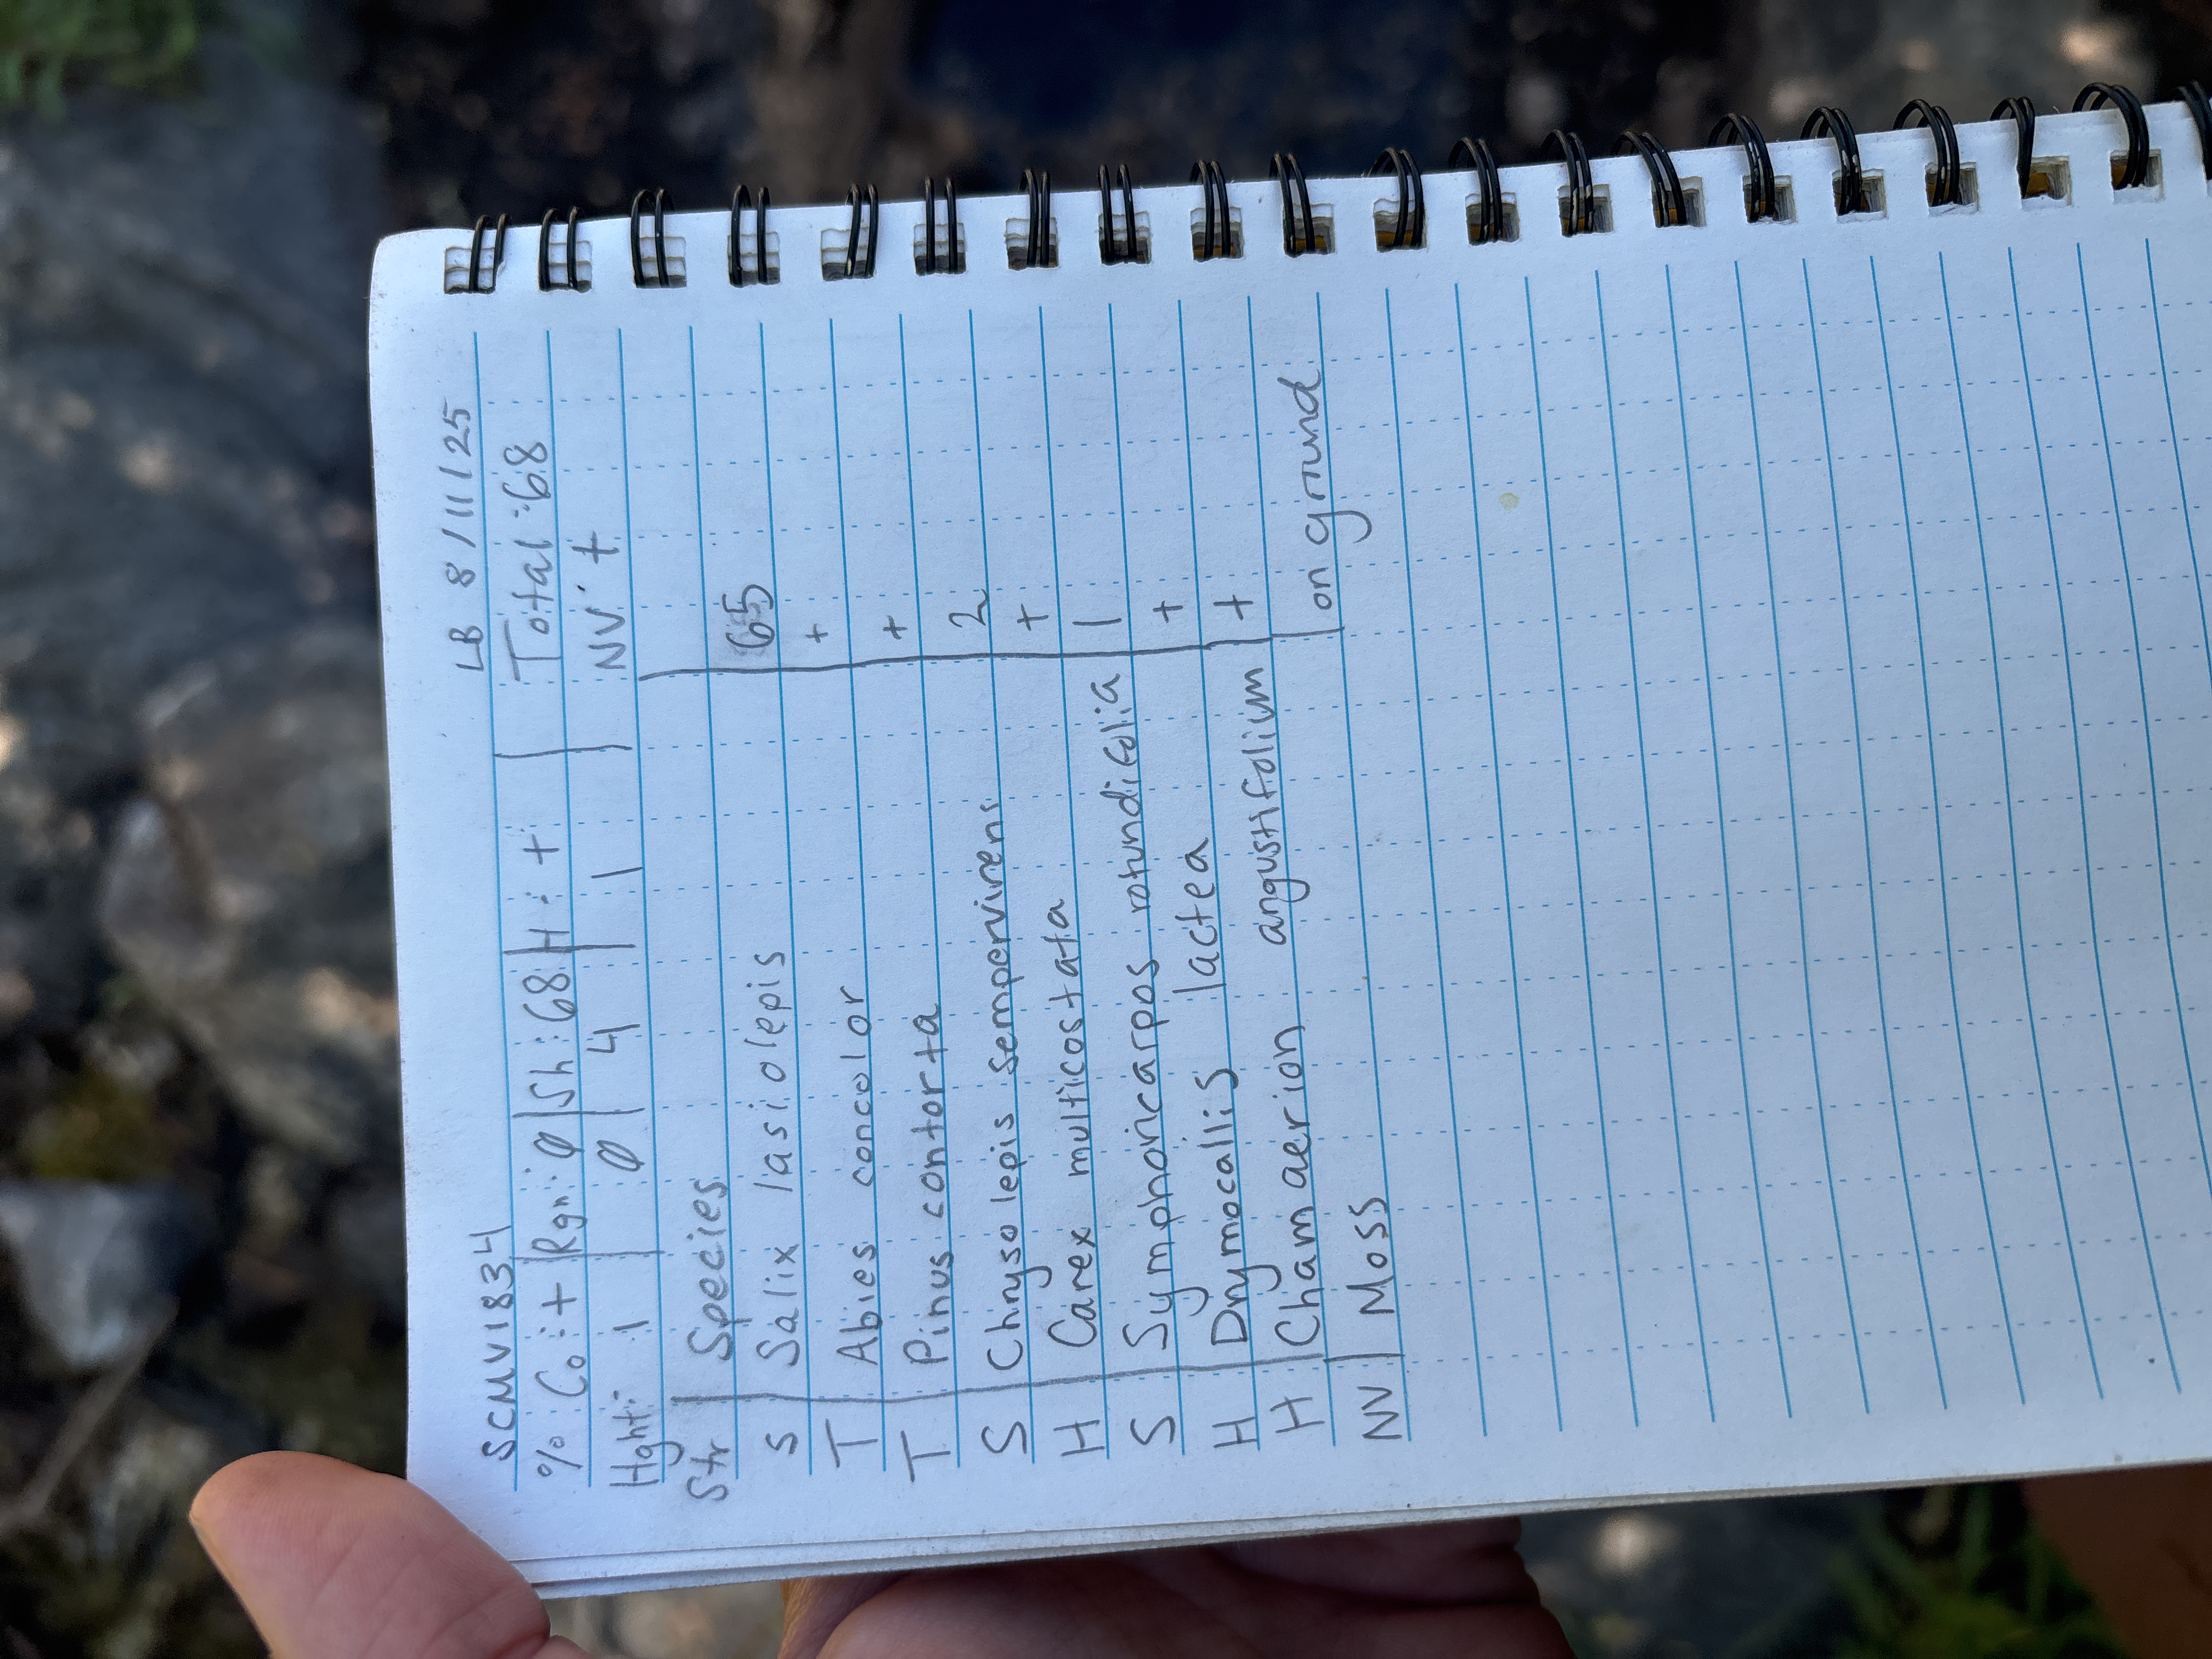 SCMV1834 LB 8/11/25
% Co: + | Rgn: Ø | Sh: 68 | H: + | Total: 68
Hght: 1 | Ø | 4 | 1 | NV: +
Str | Species
S | Salix lasiolepis | 65
T | Abies concolor | +
T | Pinus contorta | +
S | Chrysolepis sempervirens | 2
H | Carex multicostata | +
S | Symphoricarpos rotundifolia | 1
H | Drymocallis lactea | +
H | Chamaerion angustifolium | +
NV | Moss | on ground